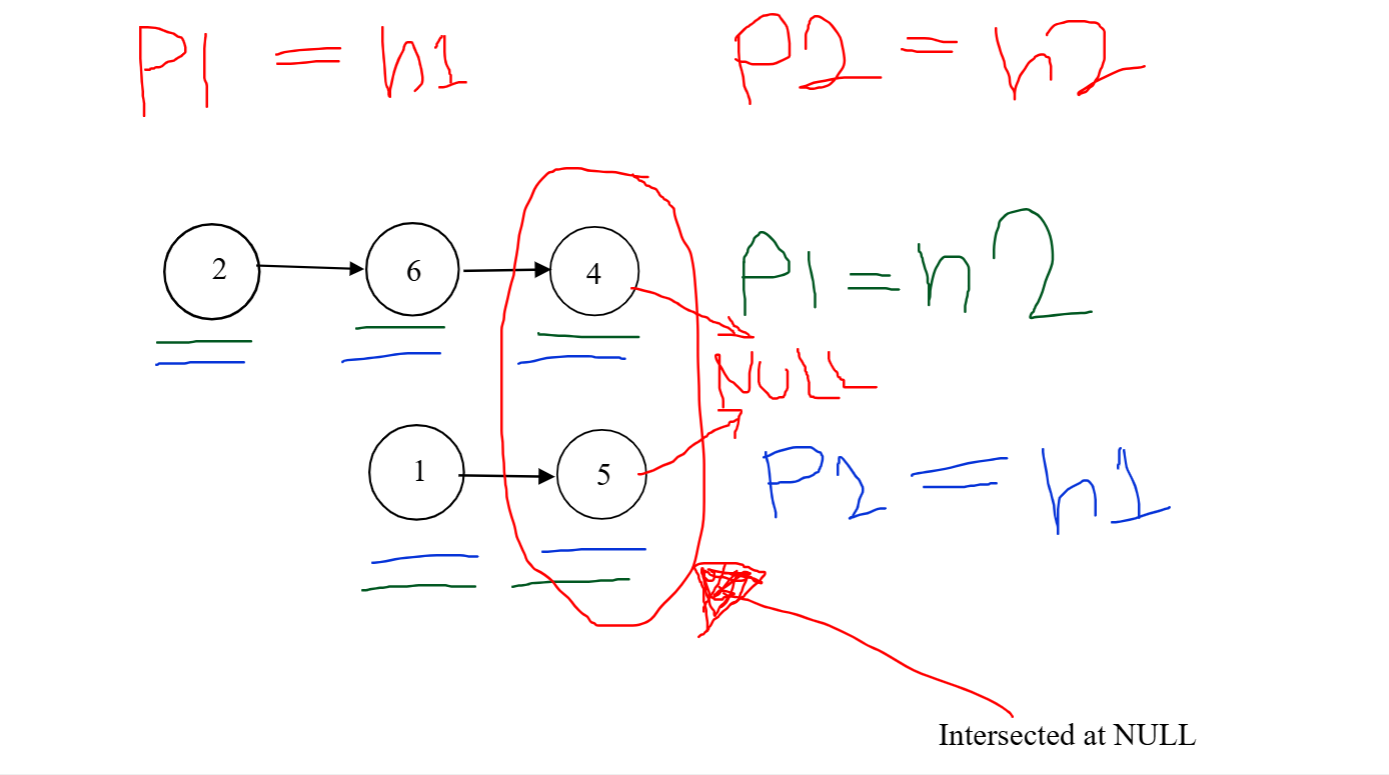 P1 = h1
P2 = h2
2
6
4
P1 = h2
NULL
1
5
P2 = h1
Intersected at NULL